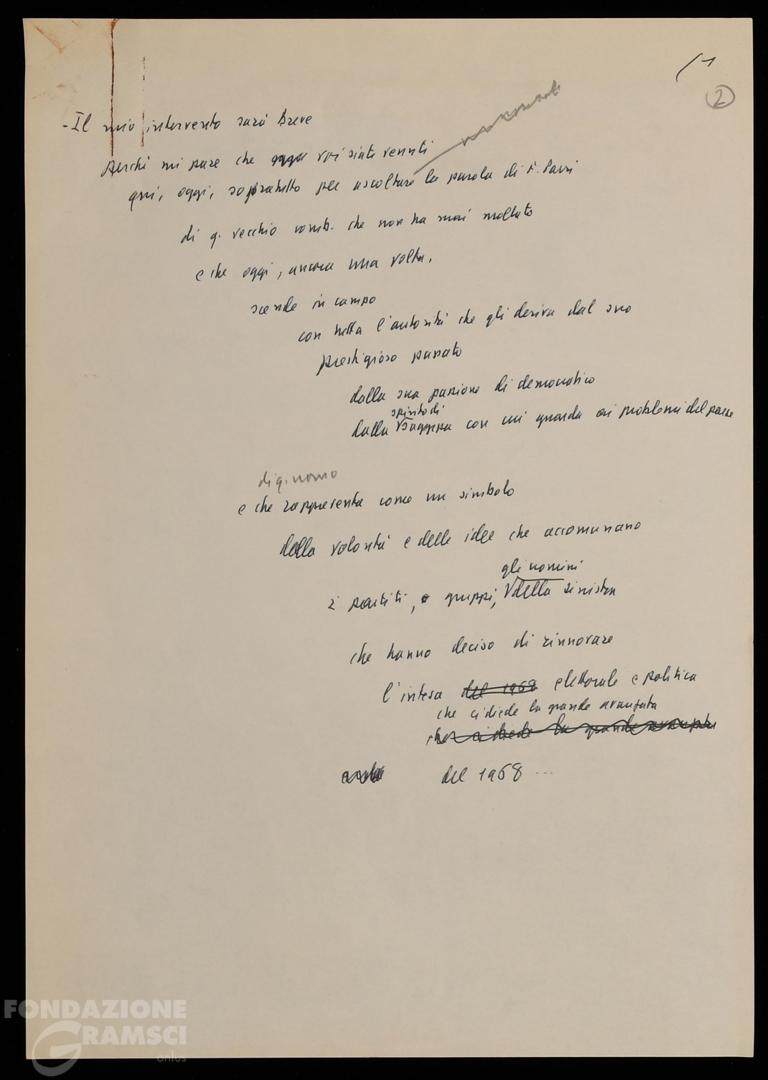 (1
2
- Il mio intervento sarà breve
Perché mi pare che voi siate venuti
qui, oggi, sopratutto per ascoltare la parola di F. Parri
di q. vecchio comb. che non ha mai mollato
e che oggi, ancora una volta,
scende in campo
con tutta l'autorità che gli deriva dal suo
prestigioso passato
dalla sua passione di democratico
spirito di
dalla saggezza con cui guarda ai problemi del paese
di q. uomo
e che rappresenta come un simbolo
della volontà e delle idee che accomunano
gli uomini
i partiti, gruppi, della sinistra
che hanno deciso di rinnovare
l'intesa del 1968 elettorale e politica
che ci diede la grande avanzata
che ci diede la grande avanzata
del 1968 ...
FONDAZIONE
GRAMSCI
onlus